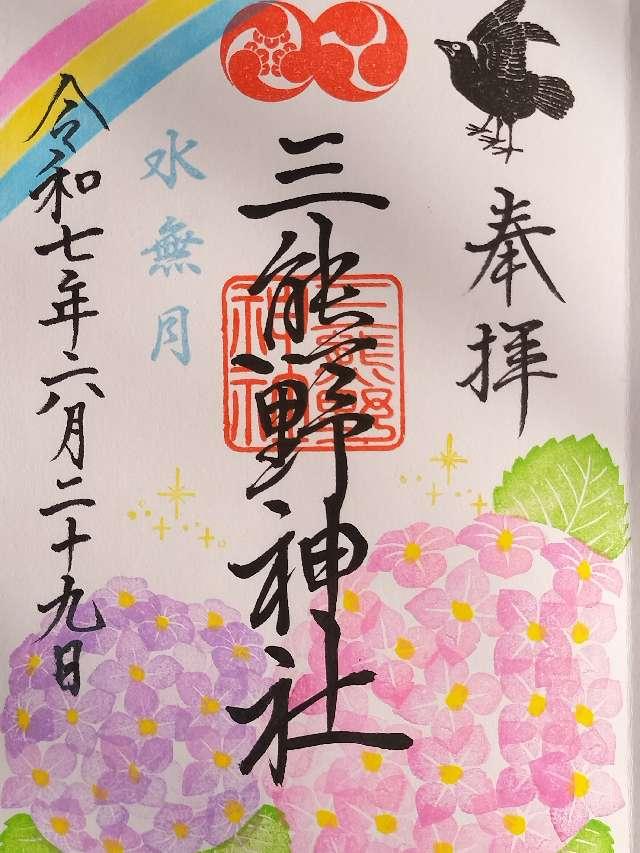 奉拝
三熊野神社
水無月
令和七年六月二十九日